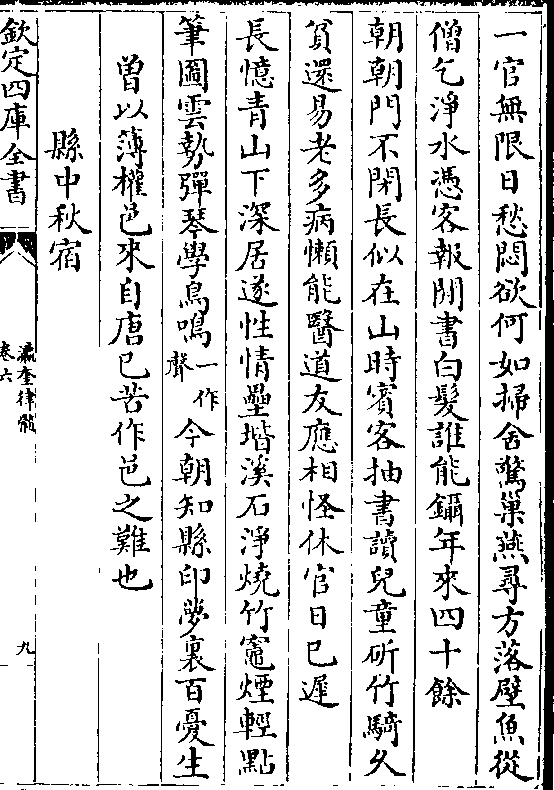 一官無限日愁悶欲何如掃舍驚巢燕尋方落壁魚從
僧乞淨水憑客報閒書白髮誰能鑷年來四十餘
朝朝門不閉長似在山時賓客抽書讀兒童斫竹騎久
貧還易老多病懶能醫道友應相怪休官日已遲
長憶青山下深居遂性情壘堦溪石淨燒竹竈煙輕點
筆圖雲勢彈琴學鳥鳴一作聲今朝知縣印夢裏百憂生
曽以薄權邑來自唐已苦作邑之難也
縣中秋宿
欽定四庫全書
瀛奎律髓
卷六
九